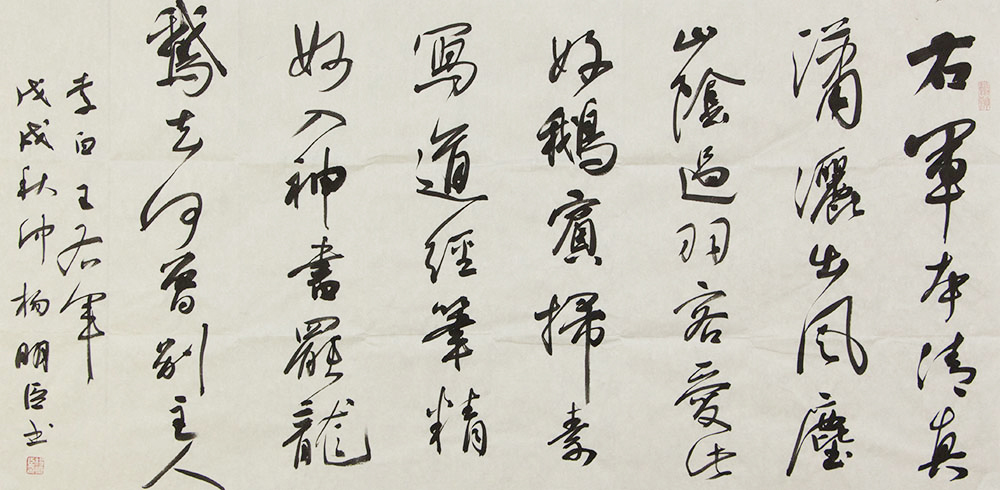 右軍本清真
瀟灑出风塵
山陰過羽客愛此
好鵝賓掃素
寫道經筆精
妙入神書罷龍
鵞去何曾別主人
李白王右軍
戊戌秋仲杨明臣书